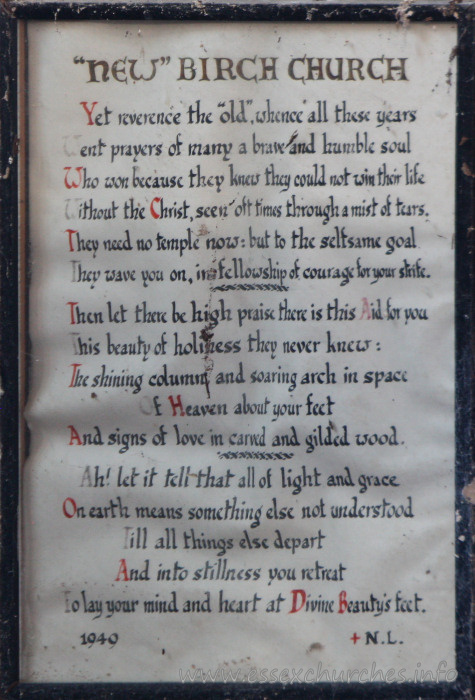 "NEW" BIRCH CHURCH
Yet reverence the "old", whence all these years
Went prayers of many a brave and humble soul
Who won because they knew they could not win their life
Without the Christ, seen oft times through a mist of tears.
They need no temple now: but to the selfsame goal
They wave you on, in fellowship of courage for your strife.
Then let there be high praise there is this Aid for you
This beauty of holiness they never knew:
The shining column and soaring arch in space
Of Heaven about your feet
And signs of love in carved and gilded wood.
Ah! let it tell that all of light and grace
On earth means something else not understood
Till all things else depart
And into stillness you retreat
To lay your mind and heart at Divine Beauty's feet.
1949 + N.L.
www.essexchurches.info